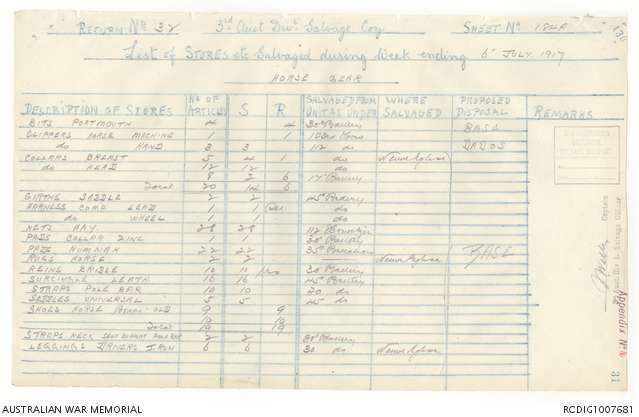 RETURN No 32 3rd Aust Divl Salvage Coy SHEET No 184A
List of STORES etc Salvaged during Week ending 6th JULY 1917
HORSE GEAR
DESCRIPTION OF STORES No OF ARTICLES S R SALVAGED FROM UNIT AS UNDER WHERE SALVAGED PROPOSED DISPOSAL REMARKS
BITS PORTMOUTH 4 4 30 Battery BASE
CLIPPERS HORSE MACHINE 1 1
do HAND 3 3 112 do DADOS
COLLARS BREAST 5 4 1 do
do HEAD 12 12 do
8 2 6 17 Battery
Total 20 14 6
GIRTHS SADDLE 2 2 45 Battery
HARNESS COMP LEAD 1 1 do
do WHEEL 1 1 do
NETS HAY 28 28 112
PADS COLLAR ZINC 1 1 30 Battery
PADS NUMNAH 22 22 35 BASE
RUGS HORSE 2 2
REINS BRIDLE 10 11 30 Battery
SURCINGLE LEATH 16 16 45 Battery
STRAPS POLE BAR 10 10 30 do
SADDLES UNIVERSAL 5 5 45 do
SHOES HORSE OLD 9 9
10 10
Total 19 19
STRAPS NECK 2 2 30 Battery
LEGGINGS DRIVERS IRON 6 6 30 do
Captain
Appendix No
31
130
AUSTRALIAN WAR MEMORIAL
RCDIG1007681